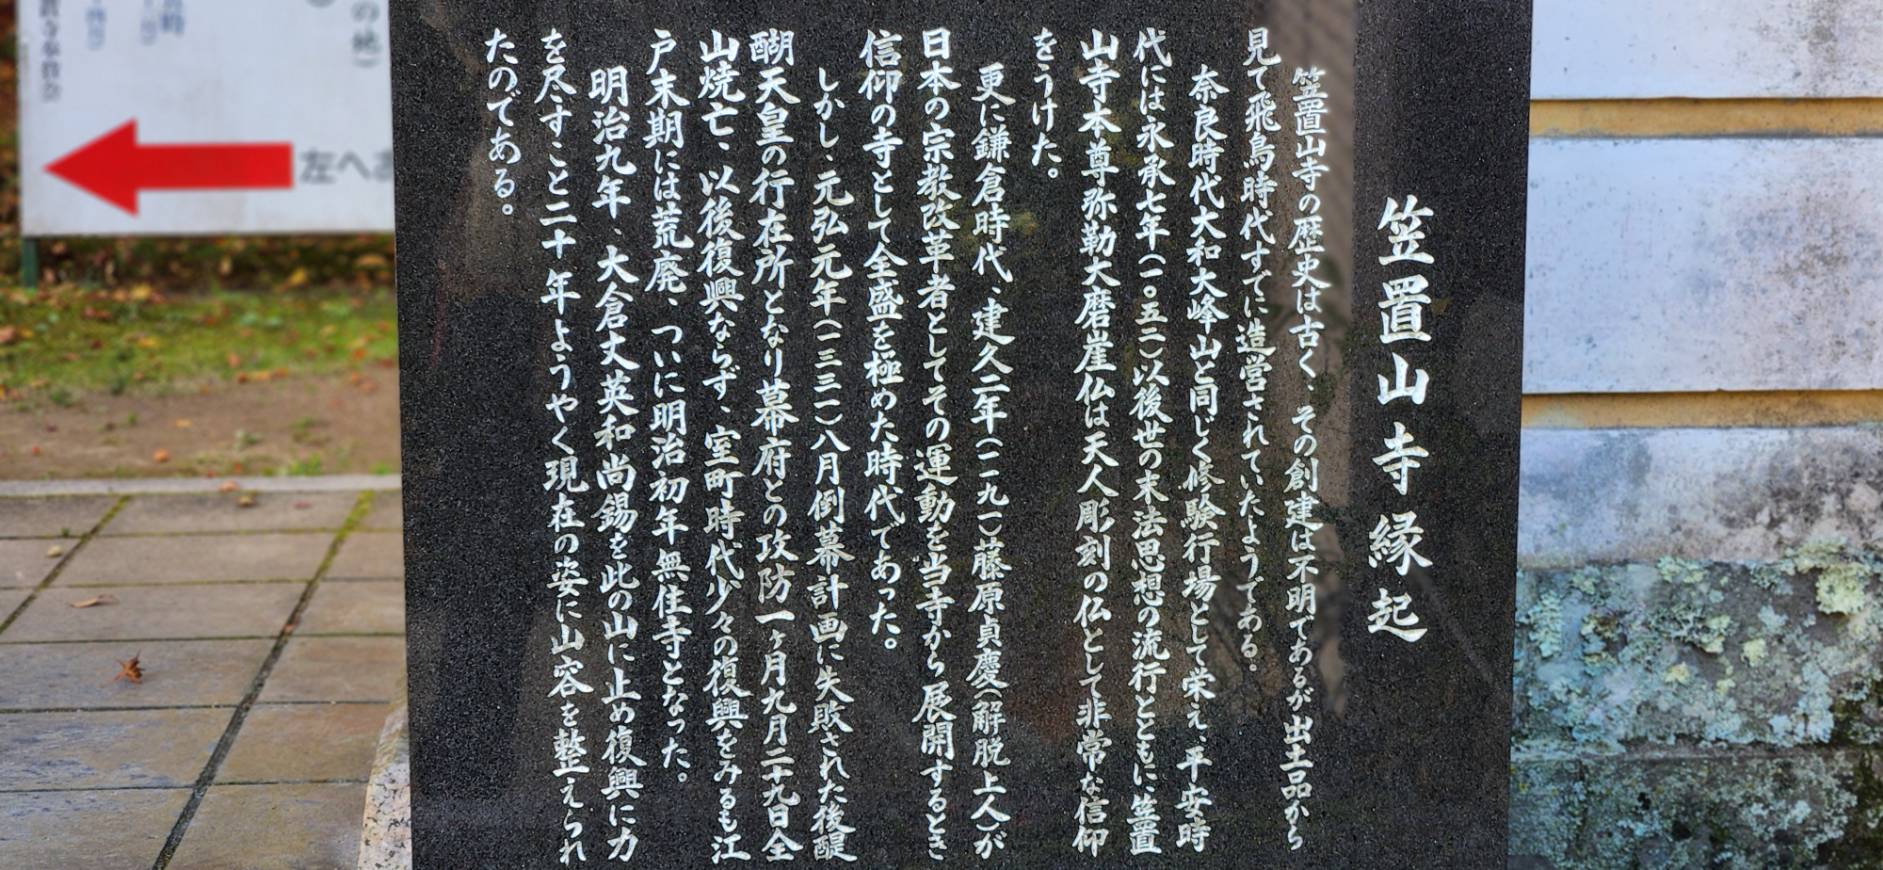 笠置山寺縁起
笠置山寺の歴史は古く、その創建は不明であるが出土品から
見て飛鳥時代すでに造営されていたようである。
奈良時代大和大峰山と同じく修験行場として栄え、平安時
代には永承七年(一〇五二)以後世の末法思想の流行とともに笠置
山寺本尊弥勒大磨崖仏は天人彫刻の仏として非常な信仰
をうけた。
更に鎌倉時代、建久二年(一一九一)藤原貞慶(解脱上人)が
日本の宗教改革者としてその運動を当寺から展開するとき
信仰の寺として全盛を極めた時代であった。
しかし、元弘元年(一三三一)八月倒幕計画に失敗された後醍
醐天皇の行在所となり幕府との攻防一ヶ月九月二十九日全
山焼亡、以後復興ならず、室町時代少々の復興をみるも江
戸末期には荒廃、ついに明治初年無住寺となった。
明治九年、大倉丈英和尚錫を此の山に止め復興に力
を尽すこと二十年ようやく現在の姿に山容を整えられ
たのである。
左へ